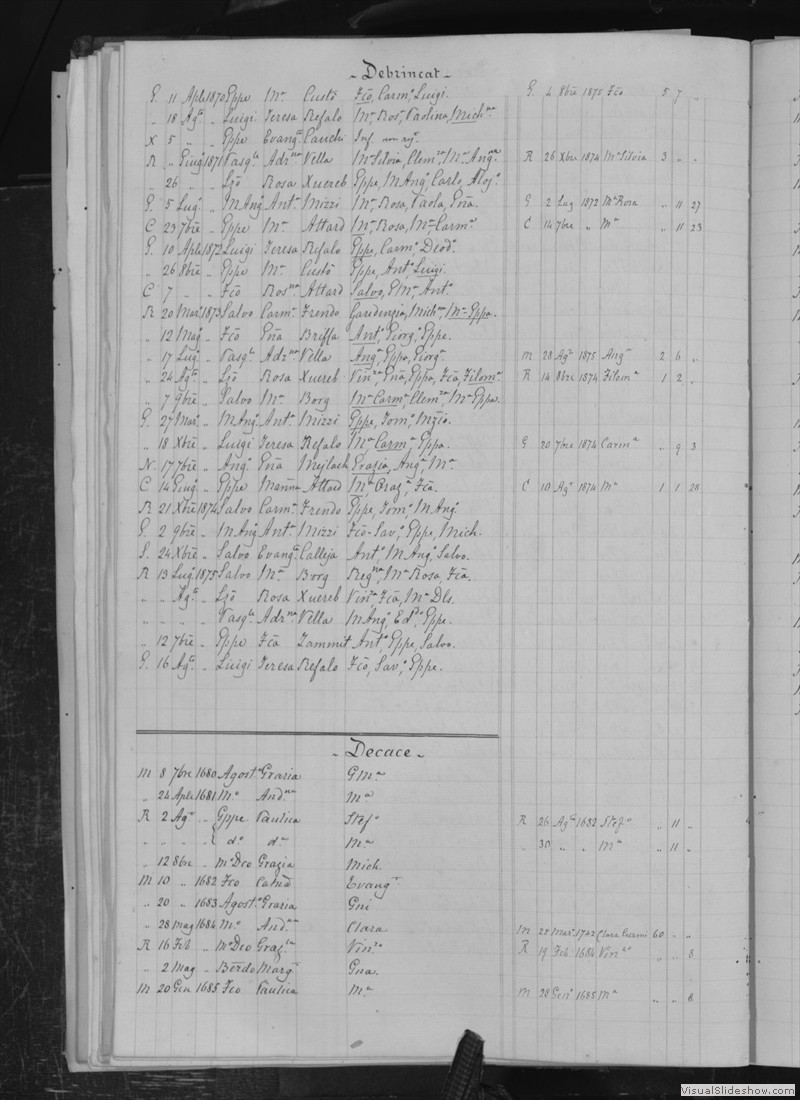 - Debrincat -
G. 11 Aple 1870 Gppe Ma Custò Fcō, Carmo, Luigi. G. 4 8bre 1870 Fcō 5 7 "
" 18 Agto " Luigi Teresa Refalo Ma Rosa, Paolina, Michna
X 5 " " Gppe Evangta Cauchi Inf. non reg.
R " Giugo 1871 Pasqle Adrna Vella Ma Silvia, Clemza, Ma Angna R 26 Xbre 1874 Ma Silvia 3 " "
" 26 " " Ljō Rosa Xuereb Gppe, M Ango, Carlo, Alojo
G 5 Lugo " M Ango Anta Mizzi Ma, Rosa, Paola, Gnā. G 2 Lug 1872 Ma Rosa " 11 27
C 23 7bre " Gppe Ma Attard Ma, Rosa, Ma Carma C 14 7bre " Ma " 11 23
G. 10 Aple 1872 Luigi Teresa Refalo Gppe, Carmo, Deodo.
" 26 8bre " Gppe Ma Custò Gppe, Anto, Luigi.
C 7 " " Fcō Rosna Attard Salvo, G Ma, Anto
R 20 Maro 1873 Salvo Carma Frendo Gaudenzia, Michna, Ma Gppa.
" 12 Mago " Fcō Gnā Briffa Anto, Giorgo, Gppe.
" 17 Lugo " Pasqle Adrna Vella Ango, Gppe, Giorgo. M 28 Ago 1875 Ango 2 6 "
" 24 Agto " Ljō Rosa Xuereb Vinza, Gnā, Gppa, Fcā, Filoma R 14 8bre 1874 Filoma 1 2 "
" 7 9bre " Salvo Ma Borg Ma Carma, Clemza, Ma Gppa.
G. 27 Maro " M Ango Anta Mizzi Gppe, Tomo, Mzio.
" 18 Xbre " Luigi Teresa Refalo Ma Carma, Gppa. G 20 7bre 1874 Carma " 9 3
N. 17 7bre " Ango Gnā Mejlach Grazia, Anga, Ma
C 14 Giugo " Gppe Marina Attard Ma, Graza, Fcā. C 10 Ago 1874 Ma 1 1 28
R 21 Xbre 1874 Salvo Carma Frendo Gppe, Tomo, M Ango
G. 2 9bre " M Ango Anta Mizzi Fcō-Savo, Gppe, Mich.
S. 24 Xbre " Salvo Evangta Calleja Anto, M Ango, Salvo.
R 13 Lugo 1875 Salvo Ma Borg Regna, Ma Rosa, Fcā.
" " Agto " Ljō Rosa Xuereb Vinza, Fcā, Ma Dls.
" " " Pasqle Adrna Vella M Ango, Edo, Gppe.
" 12 7bre " Gppe Fcā Zammit Anto, Gppe, Salvo.
G. 16 Ago " Luigi Teresa Refalo Fcō, Savo, Gppe.
- Decace -
M 8 7bre 1680 Agosto Grazia G Ma
" 24 Aple 1681 Mo Andna Ma
R 2 Ago " Gppe Paulica Stefo R 26 Ago 1682 Stefo " 11 "
" " " " do da Ma " 30 " " Ma " 11 "
" 12 8bre " Mo Dco Grazia Mich.
M 10 " 1682 Fco Catnā Evangta
" 20 " 1683 Agosto Grazia Gni
" 28 mag 1684 Mo Andna Clara M 25 Maro 1742 Clara 60 " "
R 16 Feb " Mo Dco Grazla Vinzo R 19 Feb 1684 Vinzo " " 3
" 2 Mag " Berdo Margta Gna.
M 20 Gen 1685 Fco Paulica Ma M 28 Geno 1685 Ma " " 8
VisualSlideshow.com